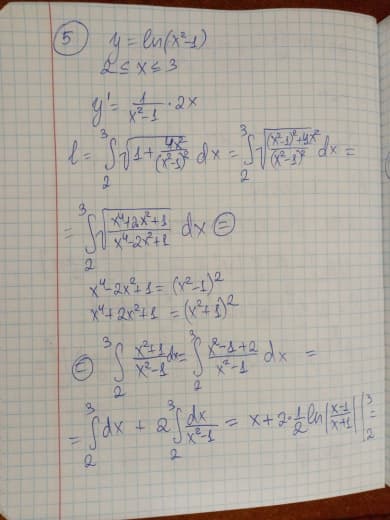 5 y = ln(x²-1)
2 ≤ x ≤ 3
y' = 1/(x²-1) · 2x
l = ∫₂³ √(1 + 4x²/(x²-1)²) dx = ∫₂³ √(((x²-1)²+4x²)/(x²-1)²) dx =
= ∫₂³ √((x⁴+2x²+1)/(x⁴-2x²+1)) dx =
x⁴-2x²+1 = (x²-1)²
x⁴+2x²+1 = (x²+1)²
= ∫₂³ (x²+1)/(x²-1) dx = ∫₂³ (x²-1+2)/(x²-1) dx =
= ∫₂³ dx + 2 ∫₂³ dx/(x²-1) = x + 2·1/2 ln|(x-1)/(x+1)| |₂³ =